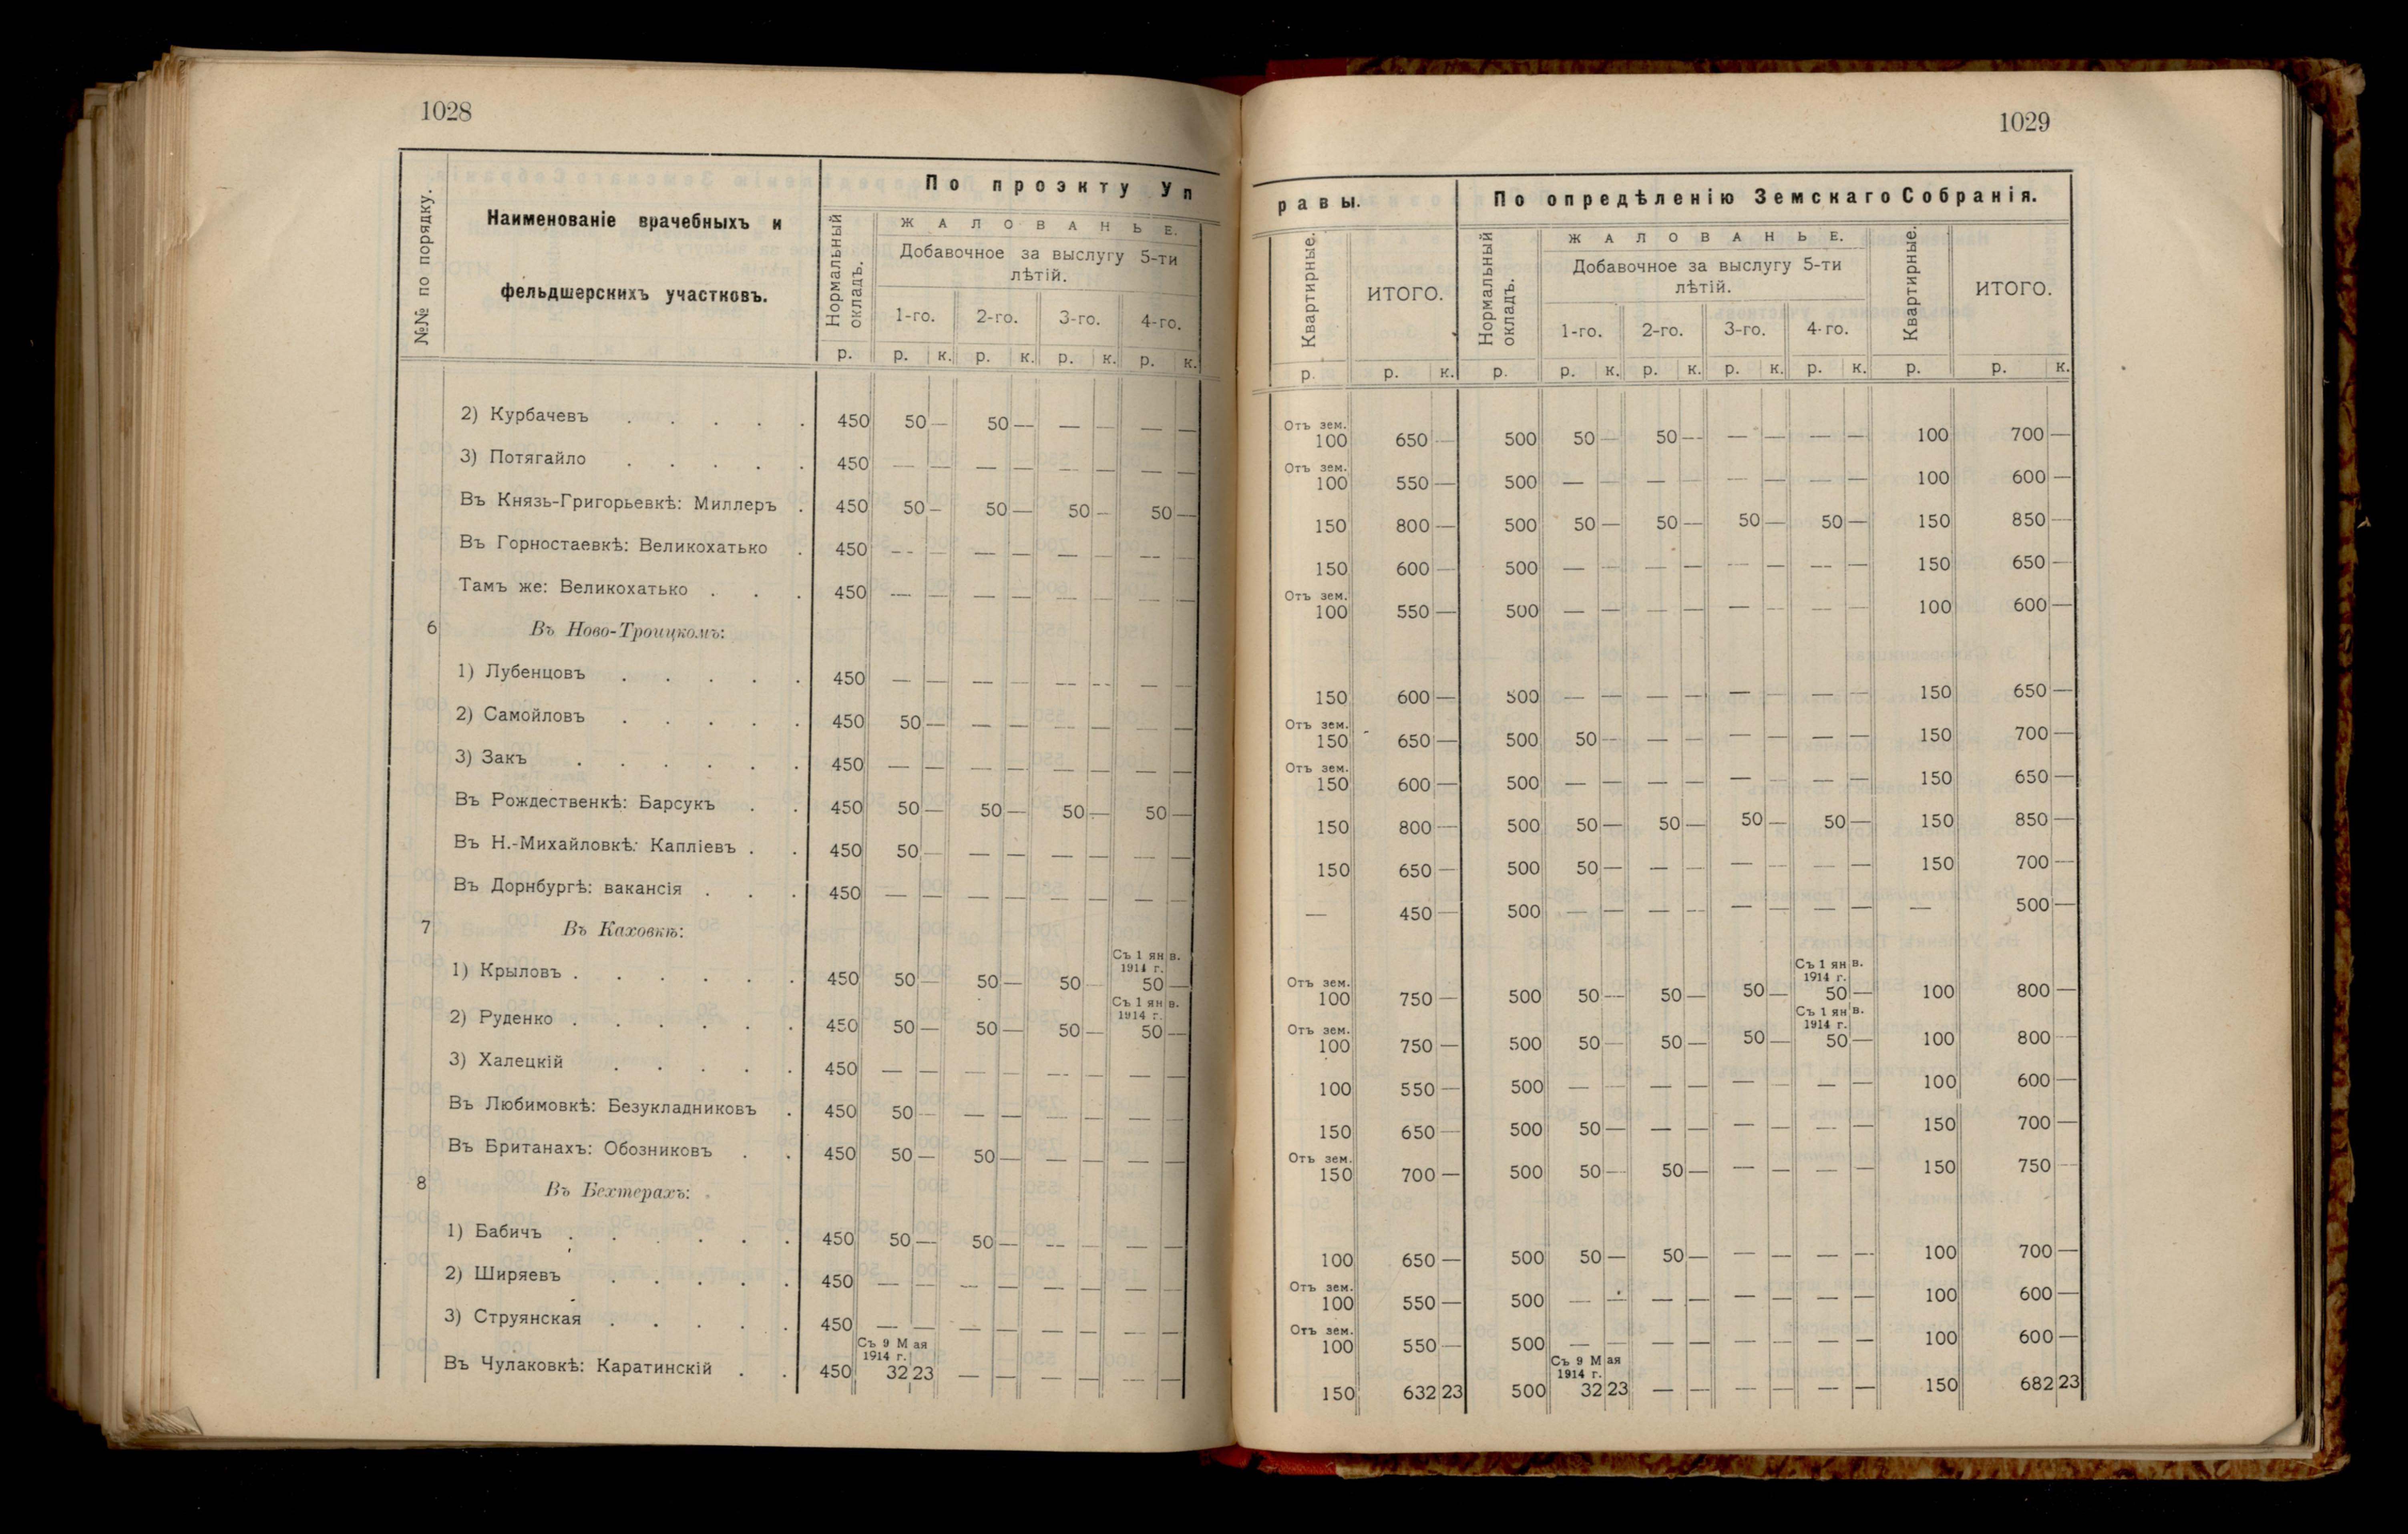 1028
№№ по порядку.
Наименованіе врачебныхъ и
фельдшерскихъ участковъ.
По проэкту Уп
Нормальный
окладъ.
ЖАЛОВАНЬЕ.
Добавочное за выслугу 5-ти
лѣтій.
1-го. 2-го. 3-го. 4-го.
р. р. к. р. к. р. к. р. к.
2) Курбачевъ . . . . . 450 50 — 50 — — — — —
3) Потягайло . . . . . 450 — — — — — — — —
Въ Князь-Григорьевкѣ: Миллеръ . 450 50 — 50 — 50 — 50 —
Въ Горностаевкѣ: Великохатько . 450 — — — — — — — —
Тамъ же: Великохатько . . . 450 — — — — — — — —
6 Въ Ново-Троицкомъ:
1) Лубенцовъ . . . . . 450 — — — — — — — —
2) Самойловъ . . . . . 450 50 — — — — — — —
3) Закъ . . . . . . 450 — — — — — — — —
Въ Рождественкѣ: Барсукъ . . 450 50 — 50 — 50 — 50 —
Въ Н.-Михайловкѣ: Капліевъ . . 450 50 — — — — — — —
Въ Дорнбургѣ: вакансія . . . 450 — — — — — — — —
7 Въ Каховкѣ:
Съ 1 янв.
1914 г.
1) Крыловъ . . . . . . 450 50 — 50 — 50 — 50 —
Съ 1 янв.
1914 г.
2) Руденко . . . . . . 450 50 — 50 — 50 — 50 —
3) Халецкій . . . . . 450 — — — — — — — —
Въ Любимовкѣ: Безукладниковъ . 450 50 — — — — — — —
Въ Британахъ: Обозниковъ . . 450 50 — 50 — — — — —
8 Въ Бехтерахъ:
1) Бабичъ . . . . . . 450 50 — 50 — — — — —
2) Ширяевъ . . . . . 450 — — — — — — — —
3) Струянская . . . . . 450 — — — — — — — —
Съ 9 Мая
1914 г.
Въ Чулаковкѣ: Каратинскій . . 450 32 23 — — — — — —
1029
равы.
По опредѣленію Земскаго Собранія.
Квартирные.
ИТОГО.
Нормальный
окладъ.
ЖАЛОВАНЬЕ.
Добавочное за выслугу 5-ти
лѣтій.
1-го. 2-го. 3-го. 4-го.
Квартирные.
ИТОГО.
р. р. к. р. р. к. р. к. р. к. р. к. р. р. к.
Отъ зем.
100 650 — 500 50 — 50 — — — — — 100 700 —
Отъ зем.
100 550 — 500 — — — — — — — — 100 600 —
150 800 — 500 50 — 50 — 50 — 50 — 150 850 —
150 600 — 500 — — — — — — — — 150 650 —
Отъ зем.
100 550 — 500 — — — — — — — — 100 600 —
150 600 — 500 — — — — — — — — 150 650 —
Отъ зем.
150 650 — 500 50 — — — — — — — 150 700 —
Отъ зем.
150 600 — 500 — — — — — — — — 150 650 —
150 800 — 500 50 — 50 — 50 — 50 — 150 850 —
150 650 — 500 50 — — — — — — — 150 700 —
— 450 — 500 — — — — — — — — — 500 —
Съ 1 янв.
1914 г.
Отъ зем.
100 750 — 500 50 — 50 — 50 — 50 — 100 800 —
Съ 1 янв.
1914 г.
Отъ зем.
100 750 — 500 50 — 50 — 50 — 50 — 100 800 —
100 550 — 500 — — — — — — — — 100 600 —
150 650 — 500 50 — — — — — — — 150 700 —
Отъ зем.
150 700 — 500 50 — 50 — — — — — 150 750 —
100 650 — 500 50 — 50 — — — — — 100 700 —
Отъ зем.
100 550 — 500 — — — — — — — — 100 600 —
Отъ зем.
100 550 — 500 — — — — — — — — 100 600 —
Съ 9 Мая
1914 г.
150 632 23 500 32 23 — — — — — — 150 682 23